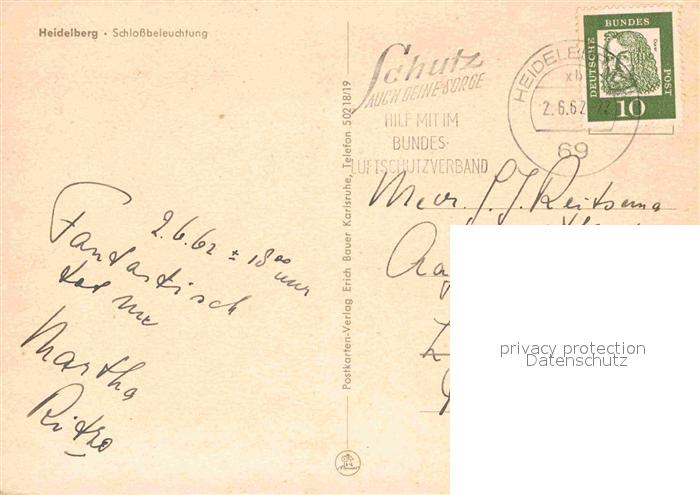 Heidelberg · Schloßbeleuchtung
2.6.62 ± 18⁰⁰ uur
Fantastisch
tot nu
Martha
Ritzo
Postkarten-Verlag Erich Bauer Karlsruhe, Telefon 50218/19
Schutz
AUCH DEINE SORGE
HILF MIT IM
BUNDES-
LUFTSCHUTZVERBAND
HEIDELBE
2.6.62
69
DEUTSCHE
BUNDES
POST
10
Mevr. J. J. Reitsema
privacy protection
Datenschutz